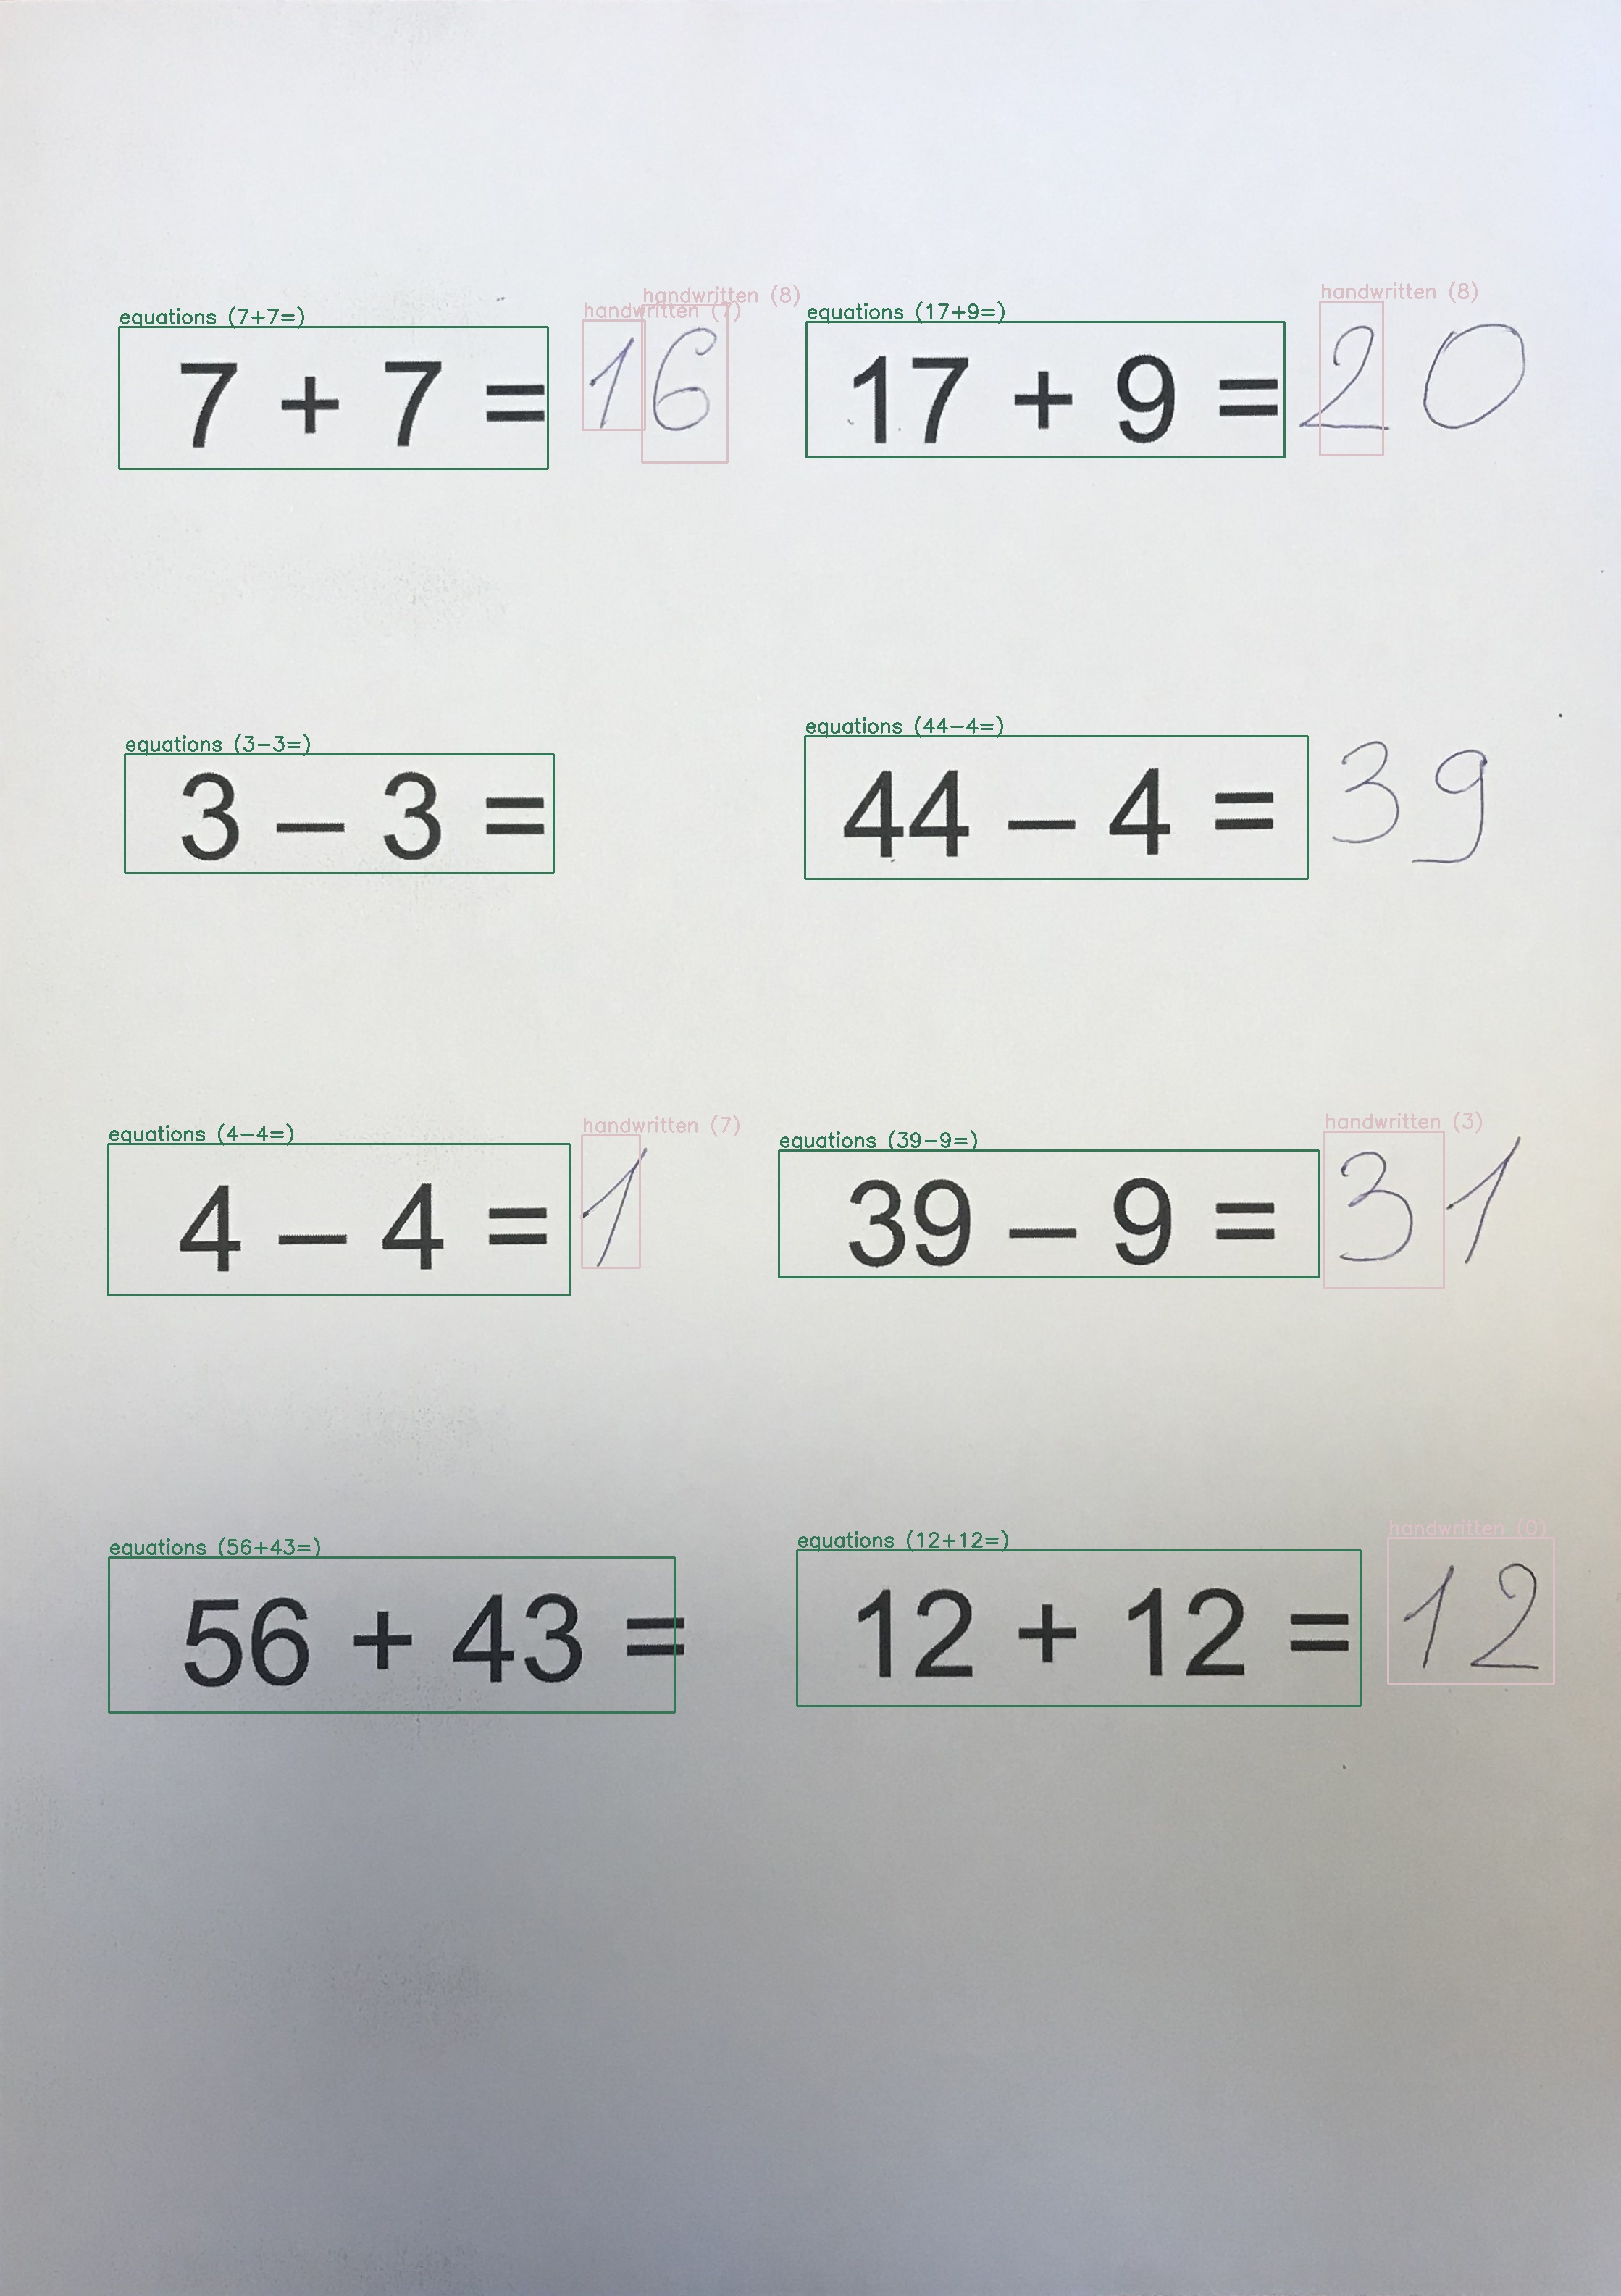 equations (7+7=) handwritten (7) handwritten (8) equations (17+9=) handwritten (8)
7 + 7 = 16 17 + 9 = 20
equations (3-3=) equations (44-4=)
3 – 3 = 44 – 4 = 39
equations (4-4=) handwritten (7) equations (39-9=) handwritten (3)
4 – 4 = 1 39 – 9 = 31
equations (56+43=) equations (12+12=) handwritten (0)
56 + 43 = 12 + 12 = 12